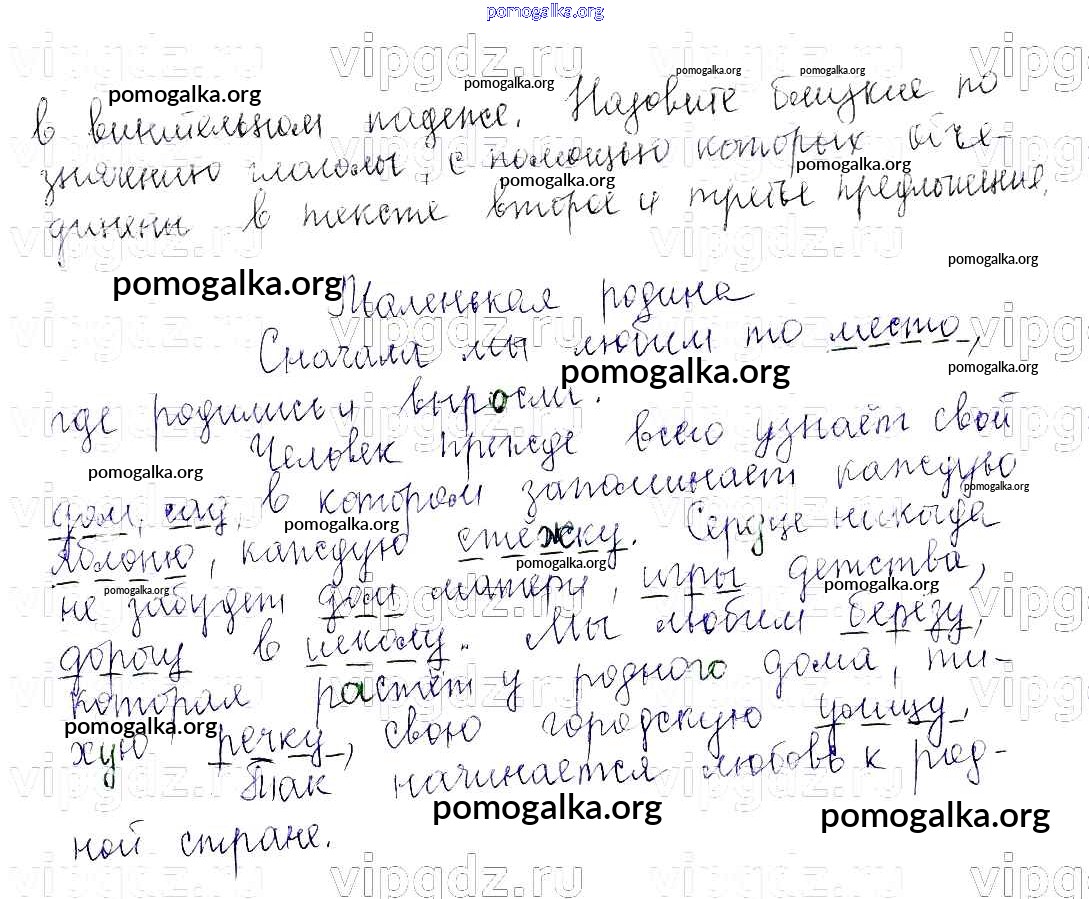 pomogalka.org
в винительном падеже. Назовите близкие по
значению глаголы, с помощью которых объе-
динены в тексте второе и третье предложения.
Маленькая родина
Сначала мы любим то место,
где родились и выросли.
Человек прежде всего узнаёт свой
дом, сад, в котором запоминает каждую
яблоню, каждую стёжку. Сердце никогда
не забудет дом матери, игры детства,
дорогу в школу. Мы любим березу,
которая растёт у родного дома, ти-
хую речку, свою городскую улицу.
Так начинается любовь к род-
ной стране.